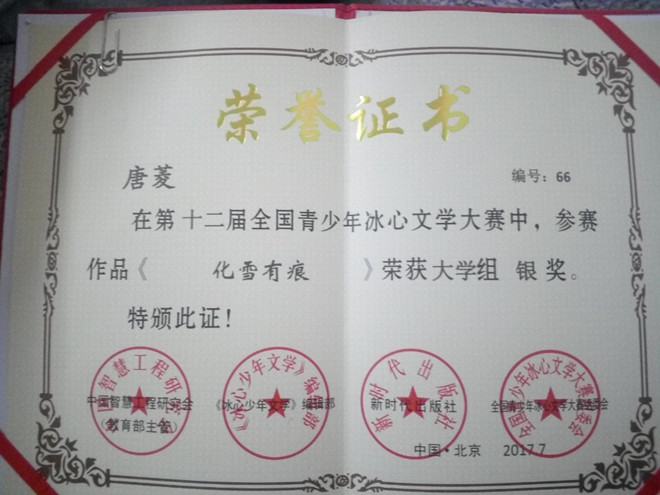 荣誉证书
唐菱
编号：66
在第十二届全国青少年冰心文学大赛中，参赛
作品《 化雪有痕 》荣获大学组 银奖。
特颁此证！
中国智慧工程研究会
（教育部主管）
《冰心少年文学》编辑部
新时代出版社
全国青少年冰心文学大赛组委会
中国·北京 2017.7
《冰心少年文学》编辑部
新时代出版社